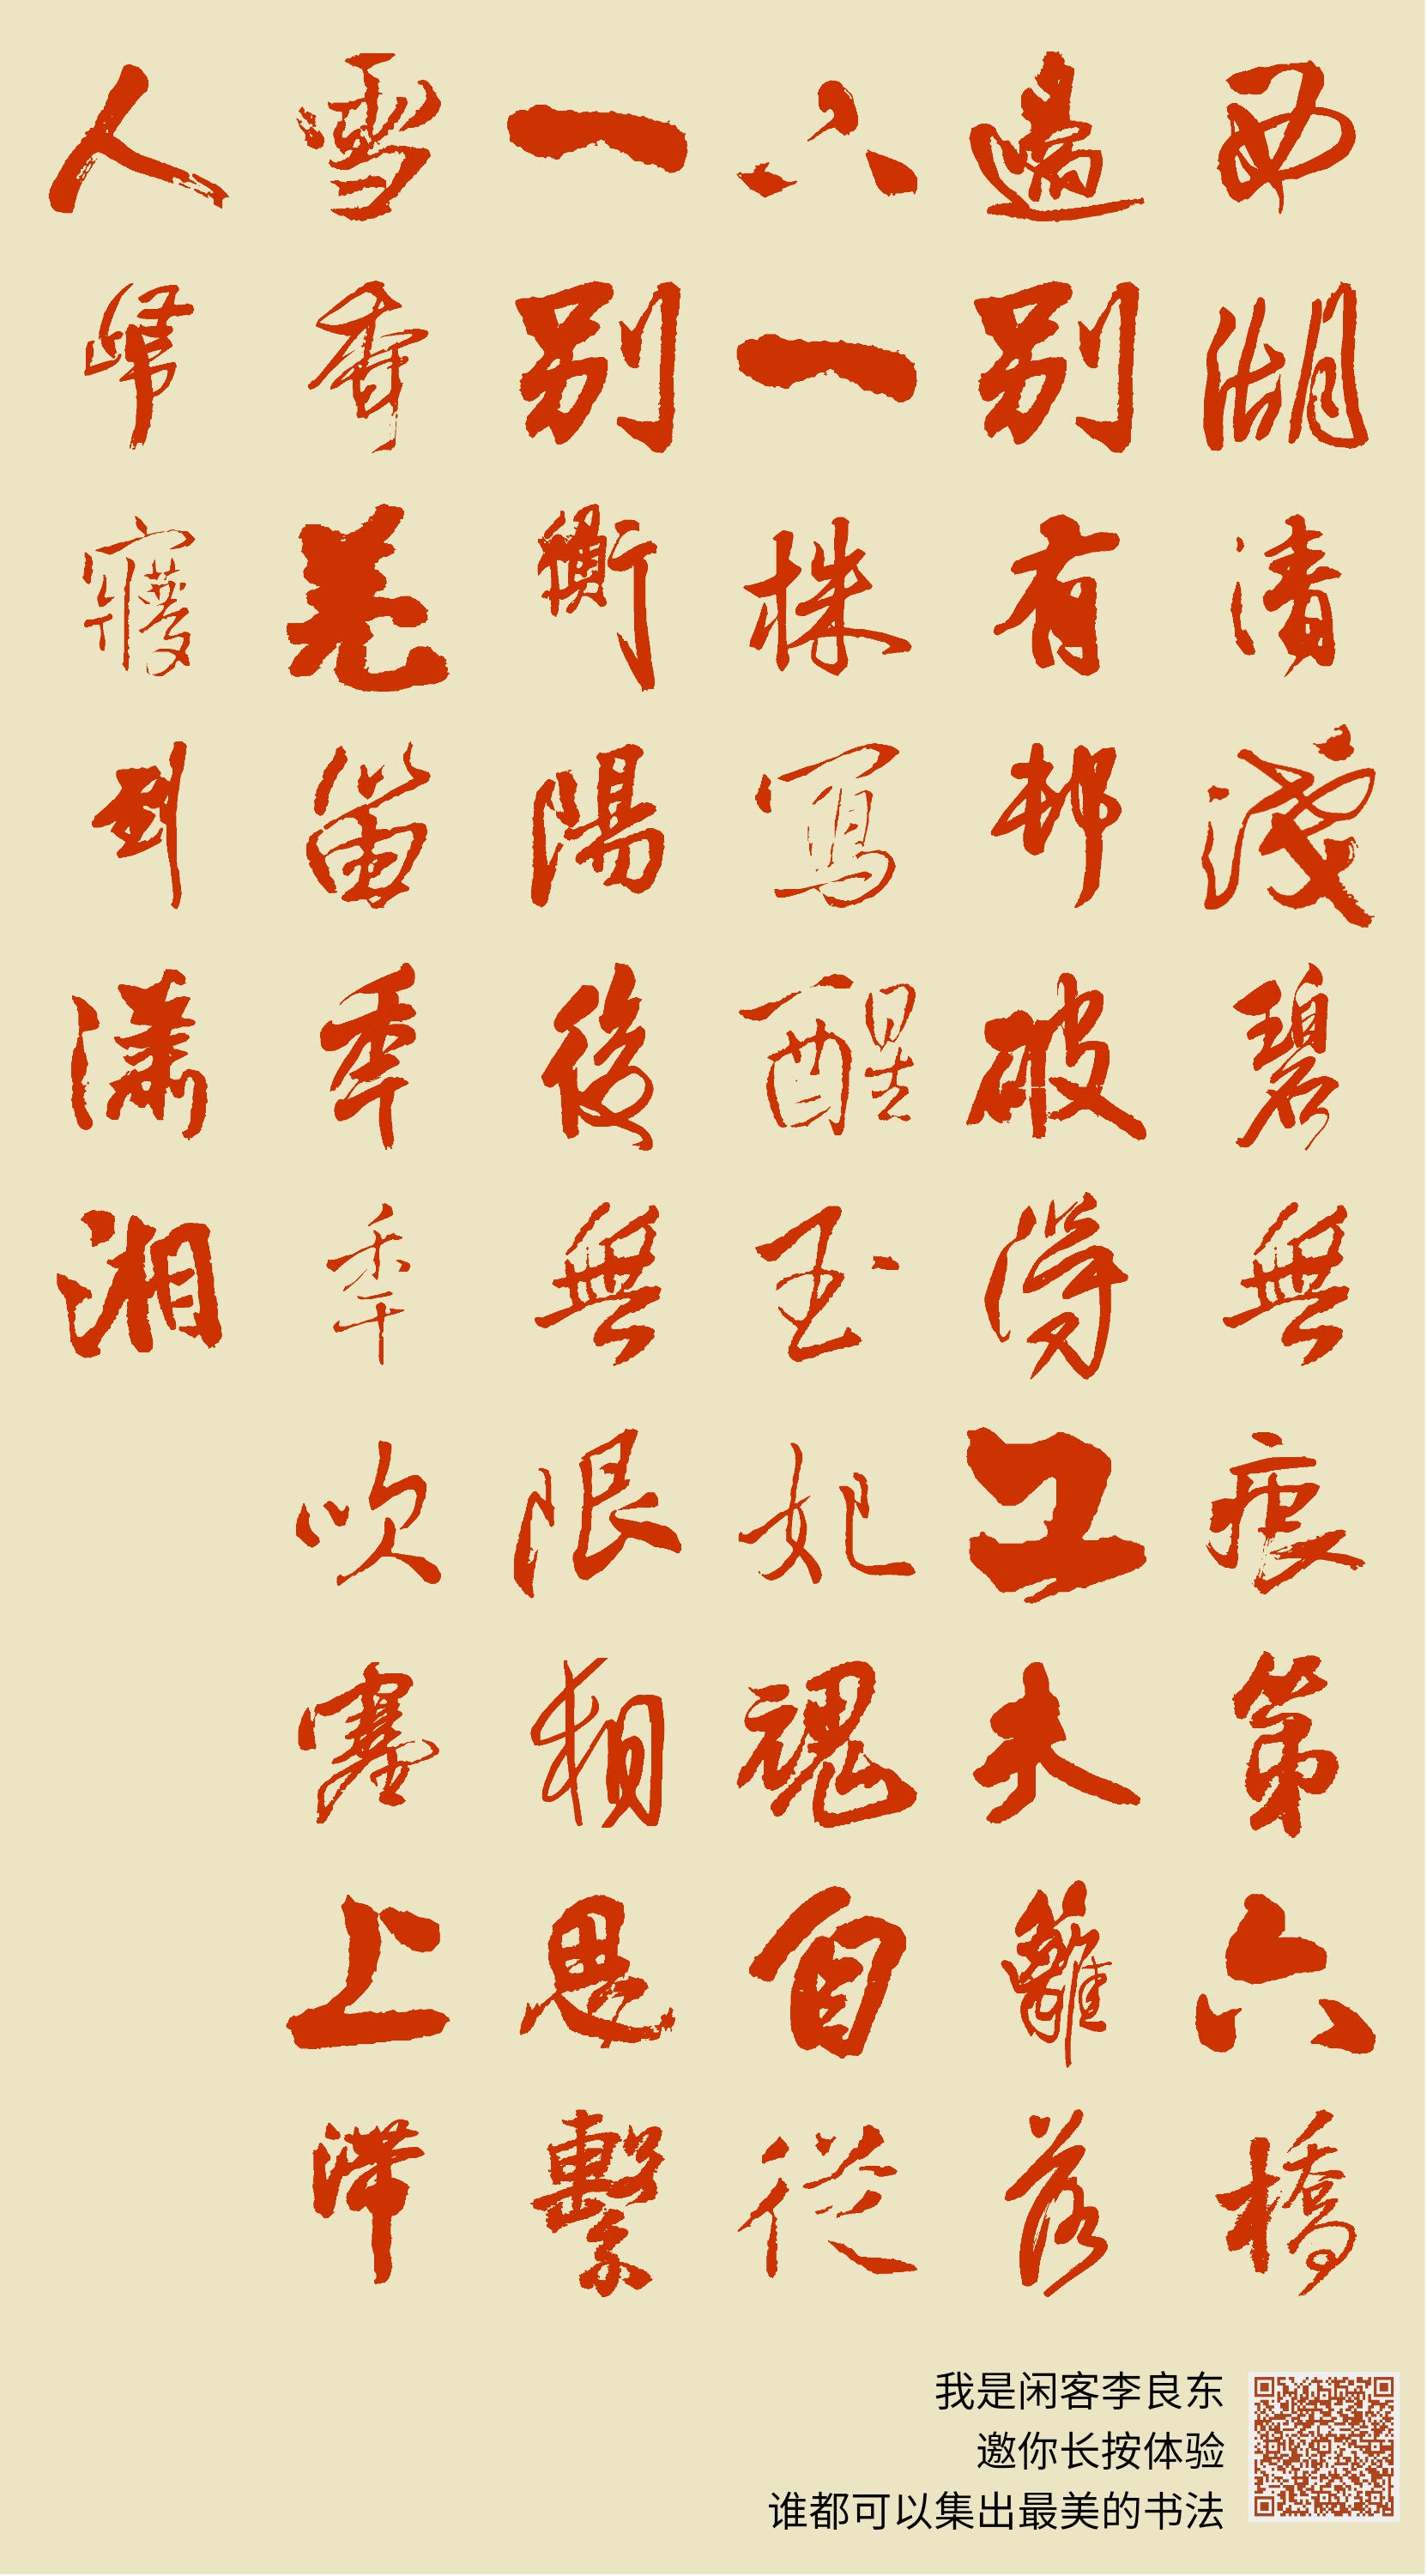 西湖清淺碧無痕第六橋
邊別有邨破得工夫籬落
下一株寫醒玉妃魂自從
一別衡陽後無限相思繫
雪香羌笛秊秊吹塞上滯
人歸㝱到瀟湘
我是闲客李良东
邀你长按体验
谁都可以集出最美的书法